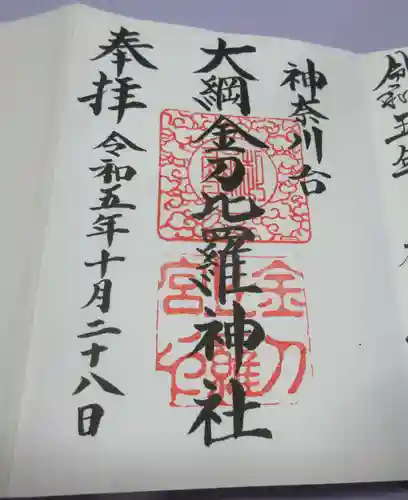 令和五年
神奈川台
大綱金刀比羅神社
奉拝
令和五年十月二十八日